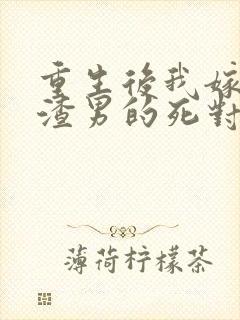 重生後我嫁
渣男的死對
薄荷柠檬茶